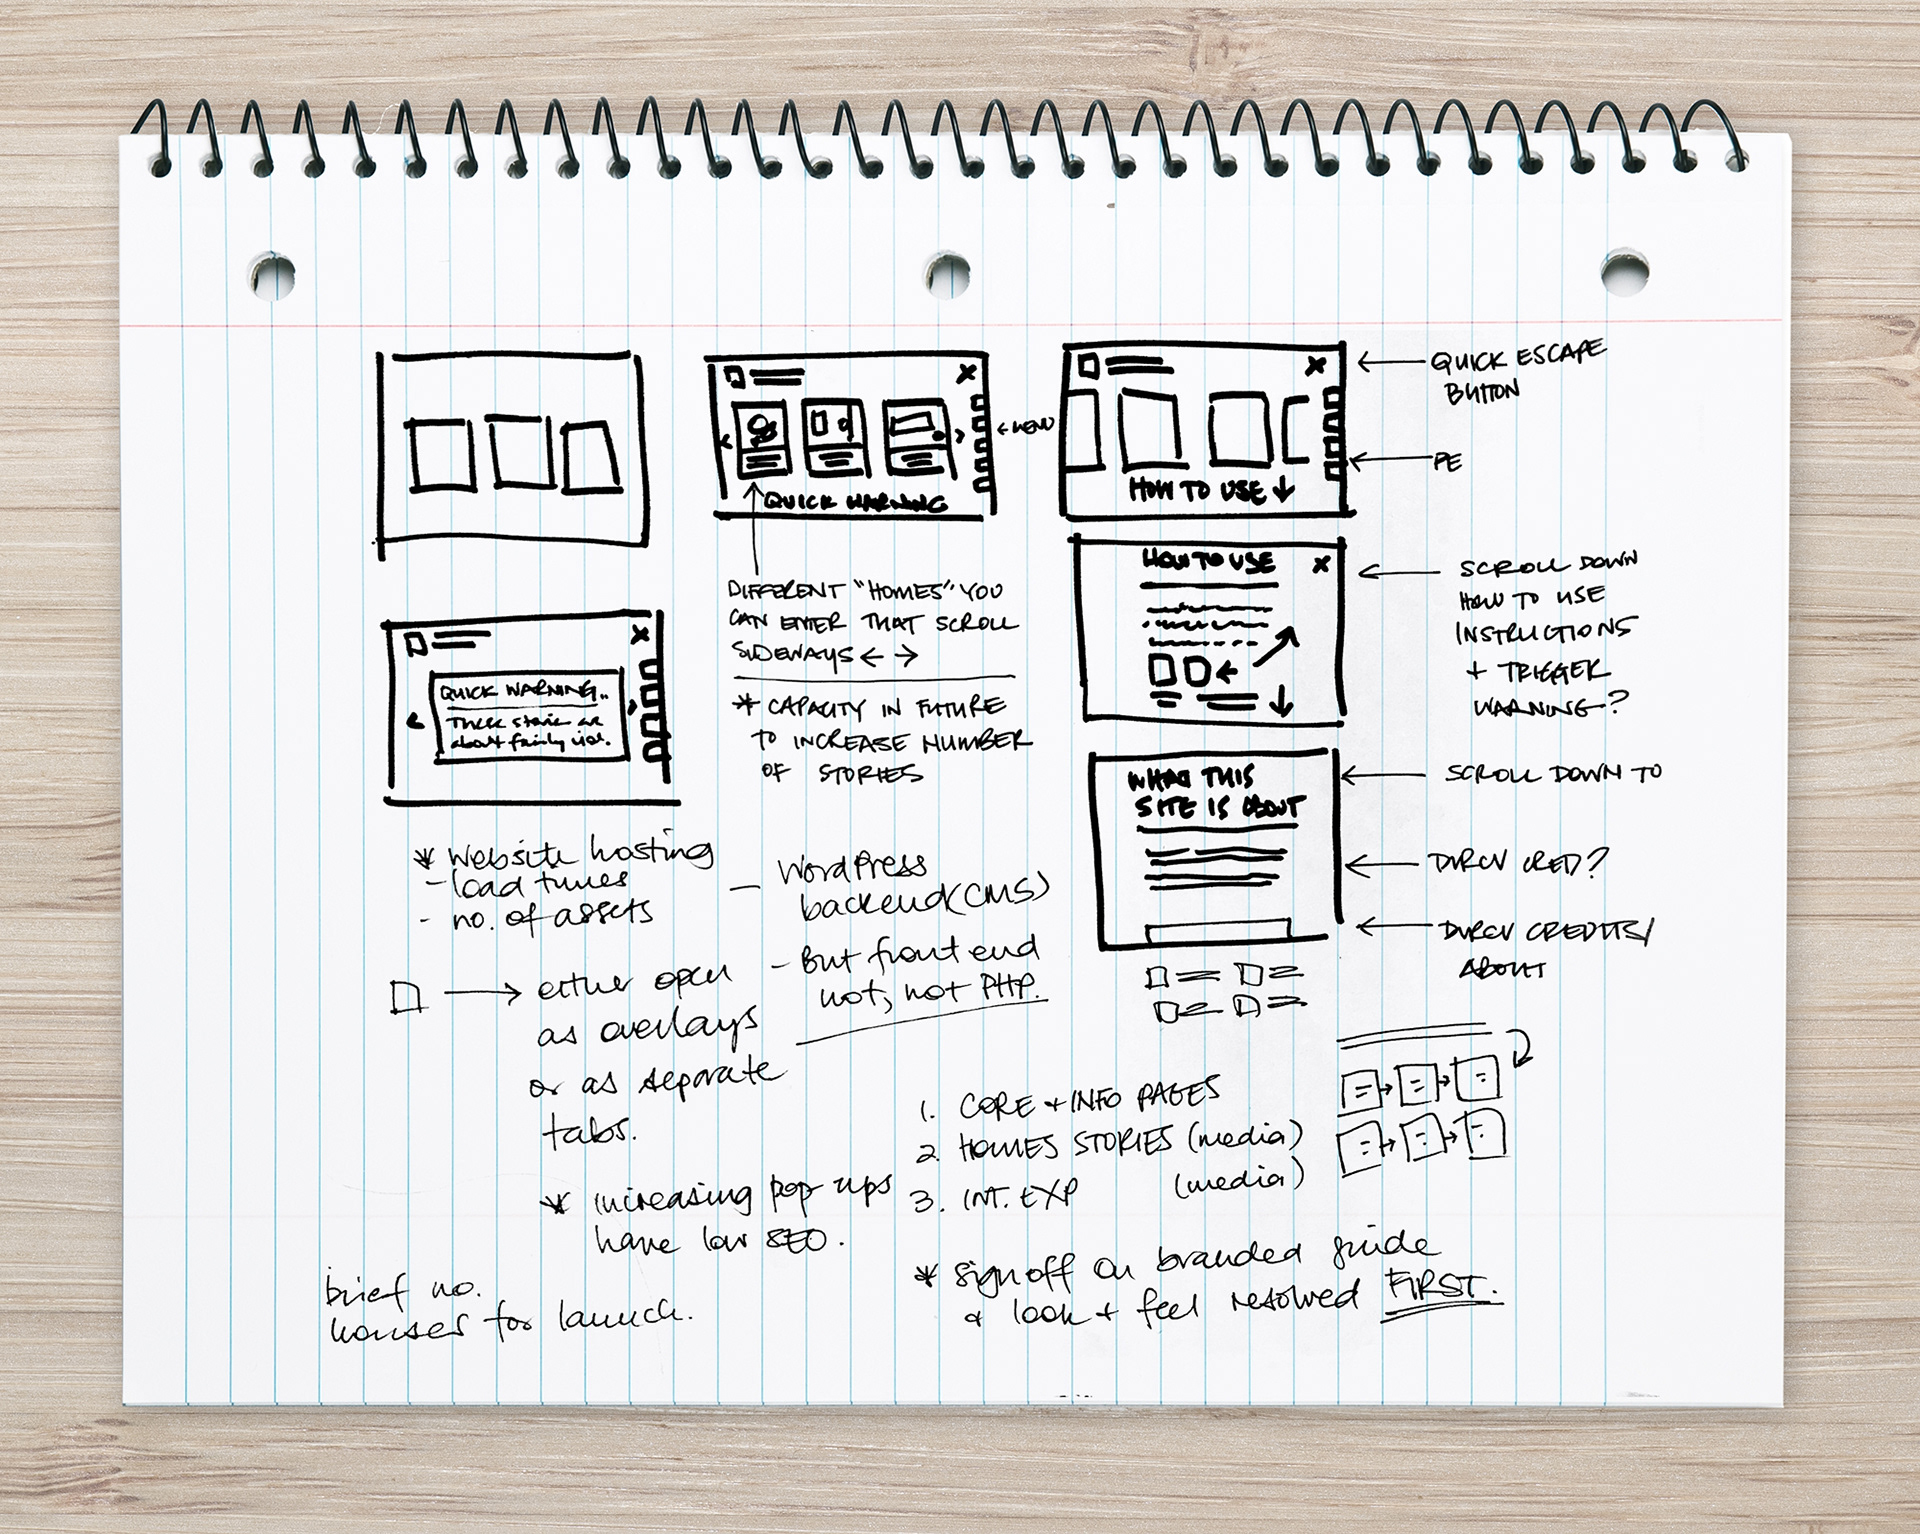 QUICK WARNING
← MENU
HOW TO USE ↓
← QUICK ESCAPE
BUTTON
← PE
DIFFERENT "HOMES" YOU
CAN ENTER THAT SCROLL
SIDEWAYS ← →
* CAPACITY IN FUTURE
TO INCREASE NUMBER
OF STORIES
QUICK WARNING..
These stories are
about family viol.
HOW TO USE
← SCROLL DOWN
HOW TO USE
INSTRUCTIONS
+ TRIGGER
WARNING?
WHAT THIS
SITE IS ABOUT
← SCROLL DOWN TO
← DVRCV CRED?
← DVRCV CREDITS/
ABOUT
* Website hosting
- load times
- no. of assets
- WordPress
backend (CMS)
- But front end
not, not PHP.
→ either open
as overlays
or as separate
tabs.
* increasing pop ups
have low SEO.
brief no.
houses for launch.
1. CORE + INFO PAGES
2. HOMES STORIES (media)
3. INT. EXP (media)
* sign off on branded guide
& look + feel resolved FIRST.